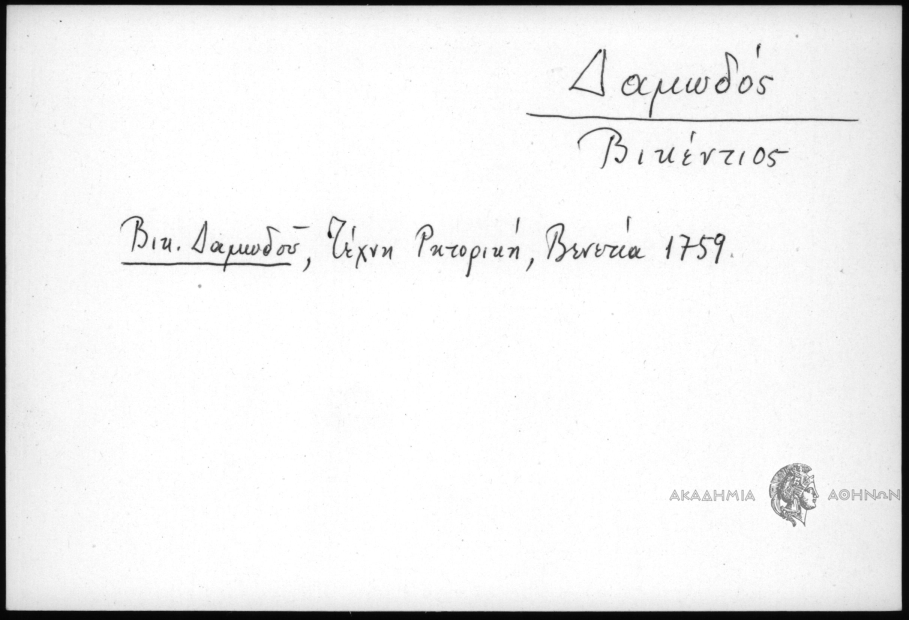 Δαμωδός
Βικέντιος
Βικ. Δαμωδοῦ, Τέχνη Ρητορική, Βενετία 1759.
ΑΚΑΔΗΜΙΑ ΑΘΗΝΩΝ